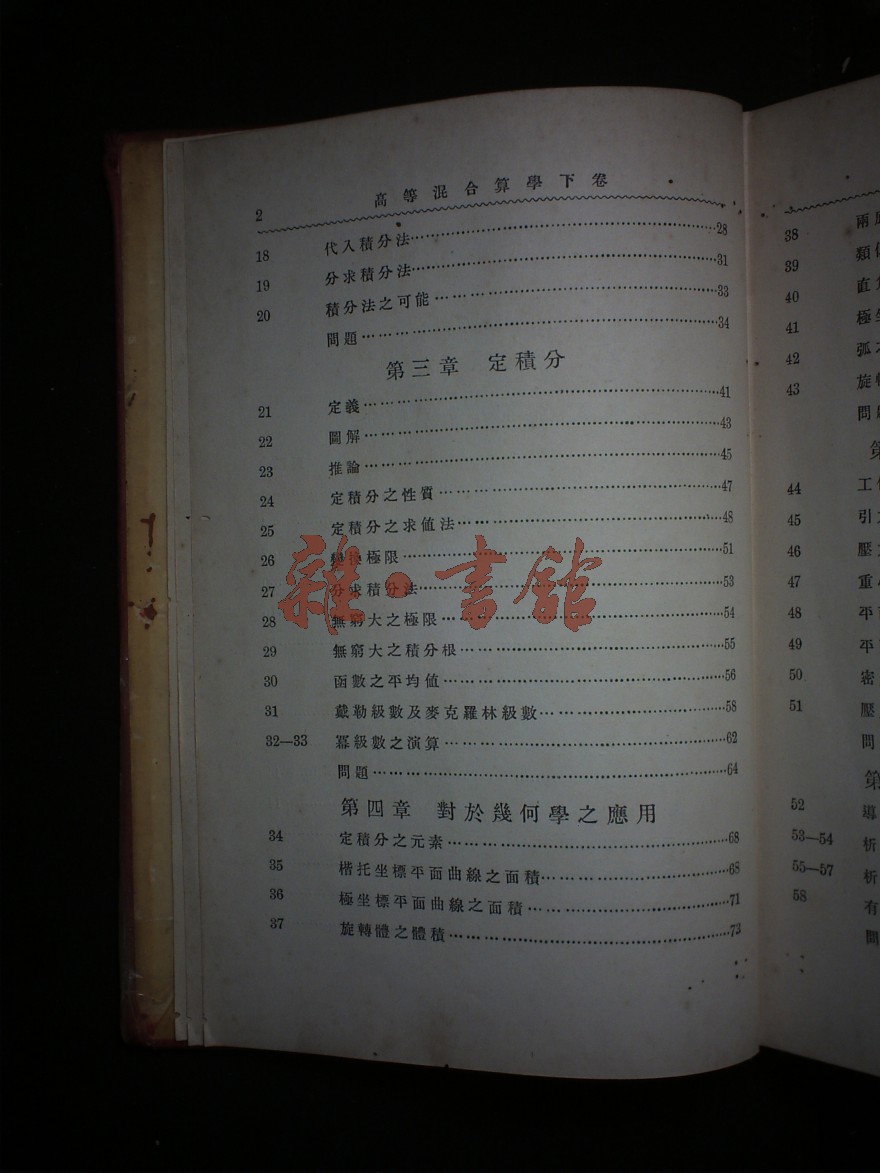 2 高等混合算學下卷
18 代入積分法………28
19 分求積分法………31
20 積分法之可能………33
問題………34
第三章 定積分
21 定義………41
22 圖解………43
23 推論………45
24 定積分之性質………47
25 定積分之求值法………48
26 變換極限………51
27 分求積分法………53
28 無窮大之極限………54
29 無窮大之積分根………55
30 函數之平均值………56
31 戴勒級數及麥克羅林級數………58
32—33 冪級數之演算………62
問題………64
第四章 對於幾何學之應用
34 定積分之元素………68
35 楷托坐標平面曲線之面積………68
36 極坐標平面曲線之面積………71
37 旋轉體之體積………73
雜·書館
38 兩
39 類
40 直
41 極
42 弧
43 旋
問
第
44 工
45 引
46 壓
47 重
48 平
49 平
50 密
51 壓
問
第
52 導
53—54 析
55—57 析
58 有
問